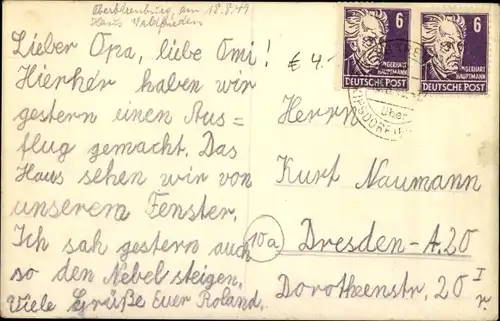 Oberbärenburg, am 18.8.49
Haus Waldfrieden
Lieber Opa, liebe Omi!
Hierher haben wir
gestern einen Aus=
flug gemacht. Das
Haus sehen wir von
unserem Fenster.
Ich sah gestern auch
so den Nebel steigen.
Viele Grüße Euer Roland.
€ 4.-
6
GERHART
HAUPTMANN
DEUTSCHE POST
6
GERHART
HAUPTMANN
DEUTSCHE POST
über
KIPSDORF
Herrn
Kurt Naumann
10a
Dresden-A.20
Dorotheenstr. 20 I
r.